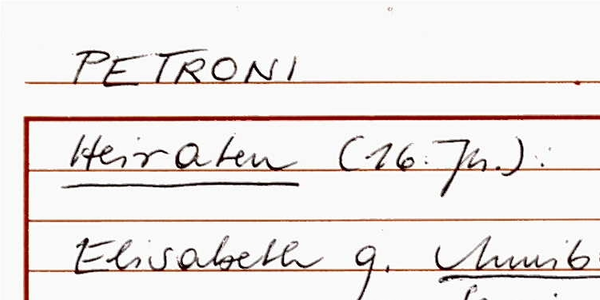 PETRONI
Heiraten (16. Jh.):
Elisabeth g.